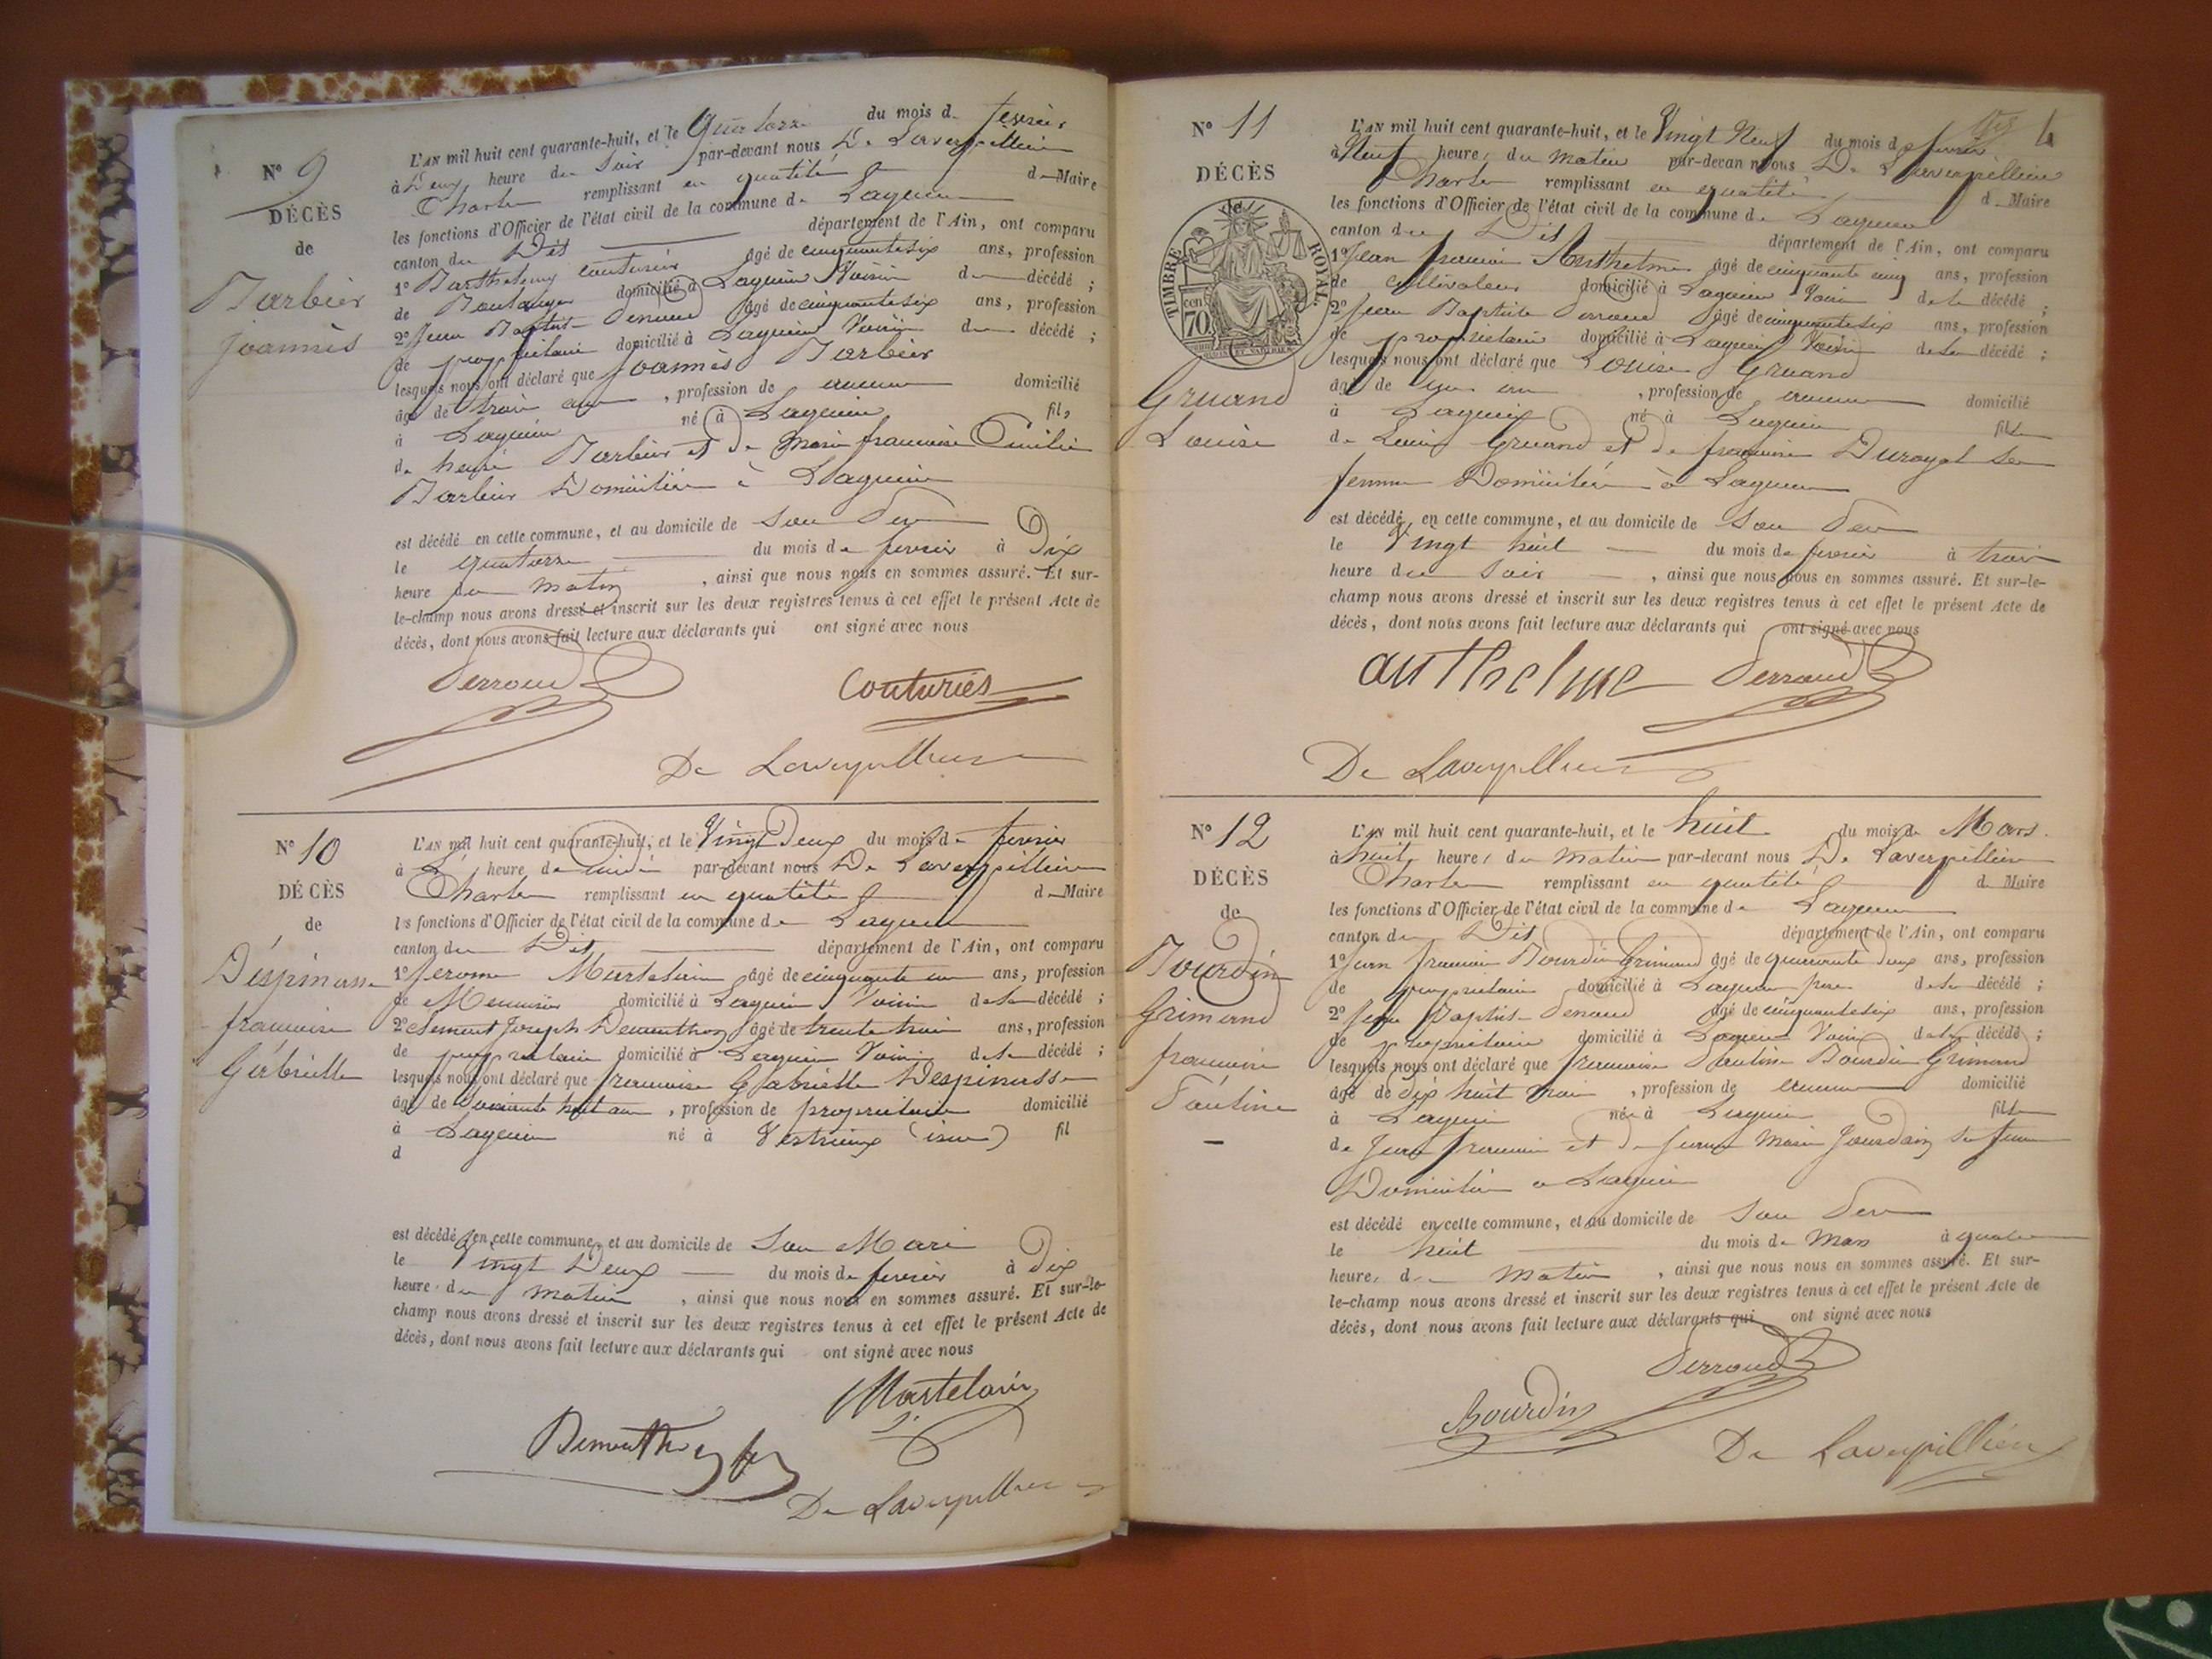 N° 9
DÉCÈS
de
Barbier
joannès
L'AN mil huit cent quarante-huit, et le Quatorze du mois de fevrier
à Deux heure du Soir par-devant nous De Laverpilliere
Charles remplissant en qualité de Maire
les fonctions d'Officier de l'état civil de la commune de Lagnieu
canton du Dit département de l'Ain, ont comparu
1° Barthelemy couturier âgé de cinquante six ans, profession
de Boulanger domicilié à Lagnieu Voisin du décédé ;
2° Jean Baptiste Perroud âgé de cinquante six ans, profession
de propriétaire domicilié à Lagnieu Voisin du décédé ;
lesquels nous ont déclaré que joannès Barbier
âgé de trois ans, profession de aucune domicilié
à Lagnieu né à Lagnieu fils
de henri Barbier et de Marie francoise Emilie
Barbier Domiciliés à Lagnieu
est décédé en cette commune, et au domicile de Son Pere
le quatorze du mois de fevrier à Dix
heure du matin, ainsi que nous nous en sommes assuré. Et sur-
le-champ nous avons dressé et inscrit sur les deux registres tenus à cet effet le présent Acte de
décès, dont nous avons fait lecture aux déclarants qui ont signé avec nous
Perroud Couturiés
De Laverpilliere
N° 10
DÉCÈS
de
Déspinasse
francoise
Gabrielle
L'AN mil huit cent quarante-huit, et le Vingt Deux du mois de fevrier
à L' heure de midi par-devant nous De Laverpilliere
Charles remplissant en qualité de Maire
les fonctions d'Officier de l'état civil de la commune de Lagnieu
canton du Dit département de l'Ain, ont comparu
1° Jerome Martelain âgé de cinquante un ans, profession
de Menuisier domicilié à Lagnieu Voisin de la décédé ;
2° clement Joseph Demanthon âgé de trente trois ans, profession
de propriétaire domicilié à Lagnieu Voisin de la décédé ;
lesquels nous ont déclaré que francoise Gabrielle Despinasse
âgé de huit ans, profession de propriétaire domicilié
à Lagnieu né à fil
d
est décédé en cette commune, et au domicile de Son Mari
le Vingt Deux du mois de fevrier à Dix
heure du matin, ainsi que nous nous en sommes assuré. Et sur-le-
champ nous avons dressé et inscrit sur les deux registres tenus à cet effet le présent Acte de
décès, dont nous avons fait lecture aux déclarants qui ont signé avec nous
Martelain
Demanthon
De Laverpilliere
4
N° 11
DÉCÈS
de
TIMBRE ROYAL
70 cen
Gruand
Louise
L'AN mil huit cent quarante-huit, et le Vingt Neuf du mois de fevrier
à Neuf heure, du matin par-devan nous De Laverpilliere
Charles remplissant en qualité de Maire
les fonctions d'Officier de l'état civil de la commune de Lagnieu
canton du Dit département de l'Ain, ont comparu
1° Jean francois Anthelme âgé de cinquante cinq ans, profession
de cultivateur domicilié à Lagnieu Voisin de la décédé ;
2° Jean Baptiste Perroud âgé de cinquante six ans, profession
de propriétaire domicilié à Lagnieu Voisin de la décédé ;
lesquels nous ont déclaré que Louise Gruand
âgé de un an, profession de aucune domicilié
à Lagnieu né à Lagnieu fille
de Louis Gruand et de francoise Durayat sa
femme Domiciliés à Lagnieu
est décédé, en cette commune, et au domicile de Son Pere
le Vingt huit du mois de fevrier à trois
heure du Soir, ainsi que nous nous en sommes assuré. Et sur-le-
champ nous avons dressé et inscrit sur les deux registres tenus à cet effet le présent Acte de
décès, dont nous avons fait lecture aux déclarants qui ont signé avec nous
anthelme Perroud
De Laverpilliere
N° 12
DÉCÈS
de
Bourdin
Grimand
francoise
Pauline
L'AN mil huit cent quarante-huit, et le huit du mois de Mars.
à huit heure, du Matin par-devant nous De Laverpilliere
Charles remplissant en qualité de Maire
les fonctions d'Officier de l'état civil de la commune de Lagnieu
canton du Dit département de l'Ain, ont comparu
1° Jean francois Bourdin Grimand âgé de quarante deux ans, profession
de propriétaire domicilié à Lagnieu pere de la décédé ;
2° Jean Baptiste Perroud âgé de cinquante six ans, profession
de propriétaire domicilié à Lagnieu Voisin de la décédé ;
lesquels nous ont déclaré que francoise Pauline Bourdin Grimand
âgé de dix huit mois, profession de aucune domicilié
à Lagnieu née à Lagnieu fille
de Jean francois et de Marie Jourdain sa femme
Domiciliés a Lagnieu
est décédé en cette commune, et au domicile de Son Pere
le huit du mois de Mars à quatre
heure, du matin, ainsi que nous nous en sommes assuré. Et sur-
le-champ nous avons dressé et inscrit sur les deux registres tenus à cet effet le présent Acte de
décès, dont nous avons fait lecture aux déclarants qui ont signé avec nous
Perroud
Bourdin
De Laverpilliere